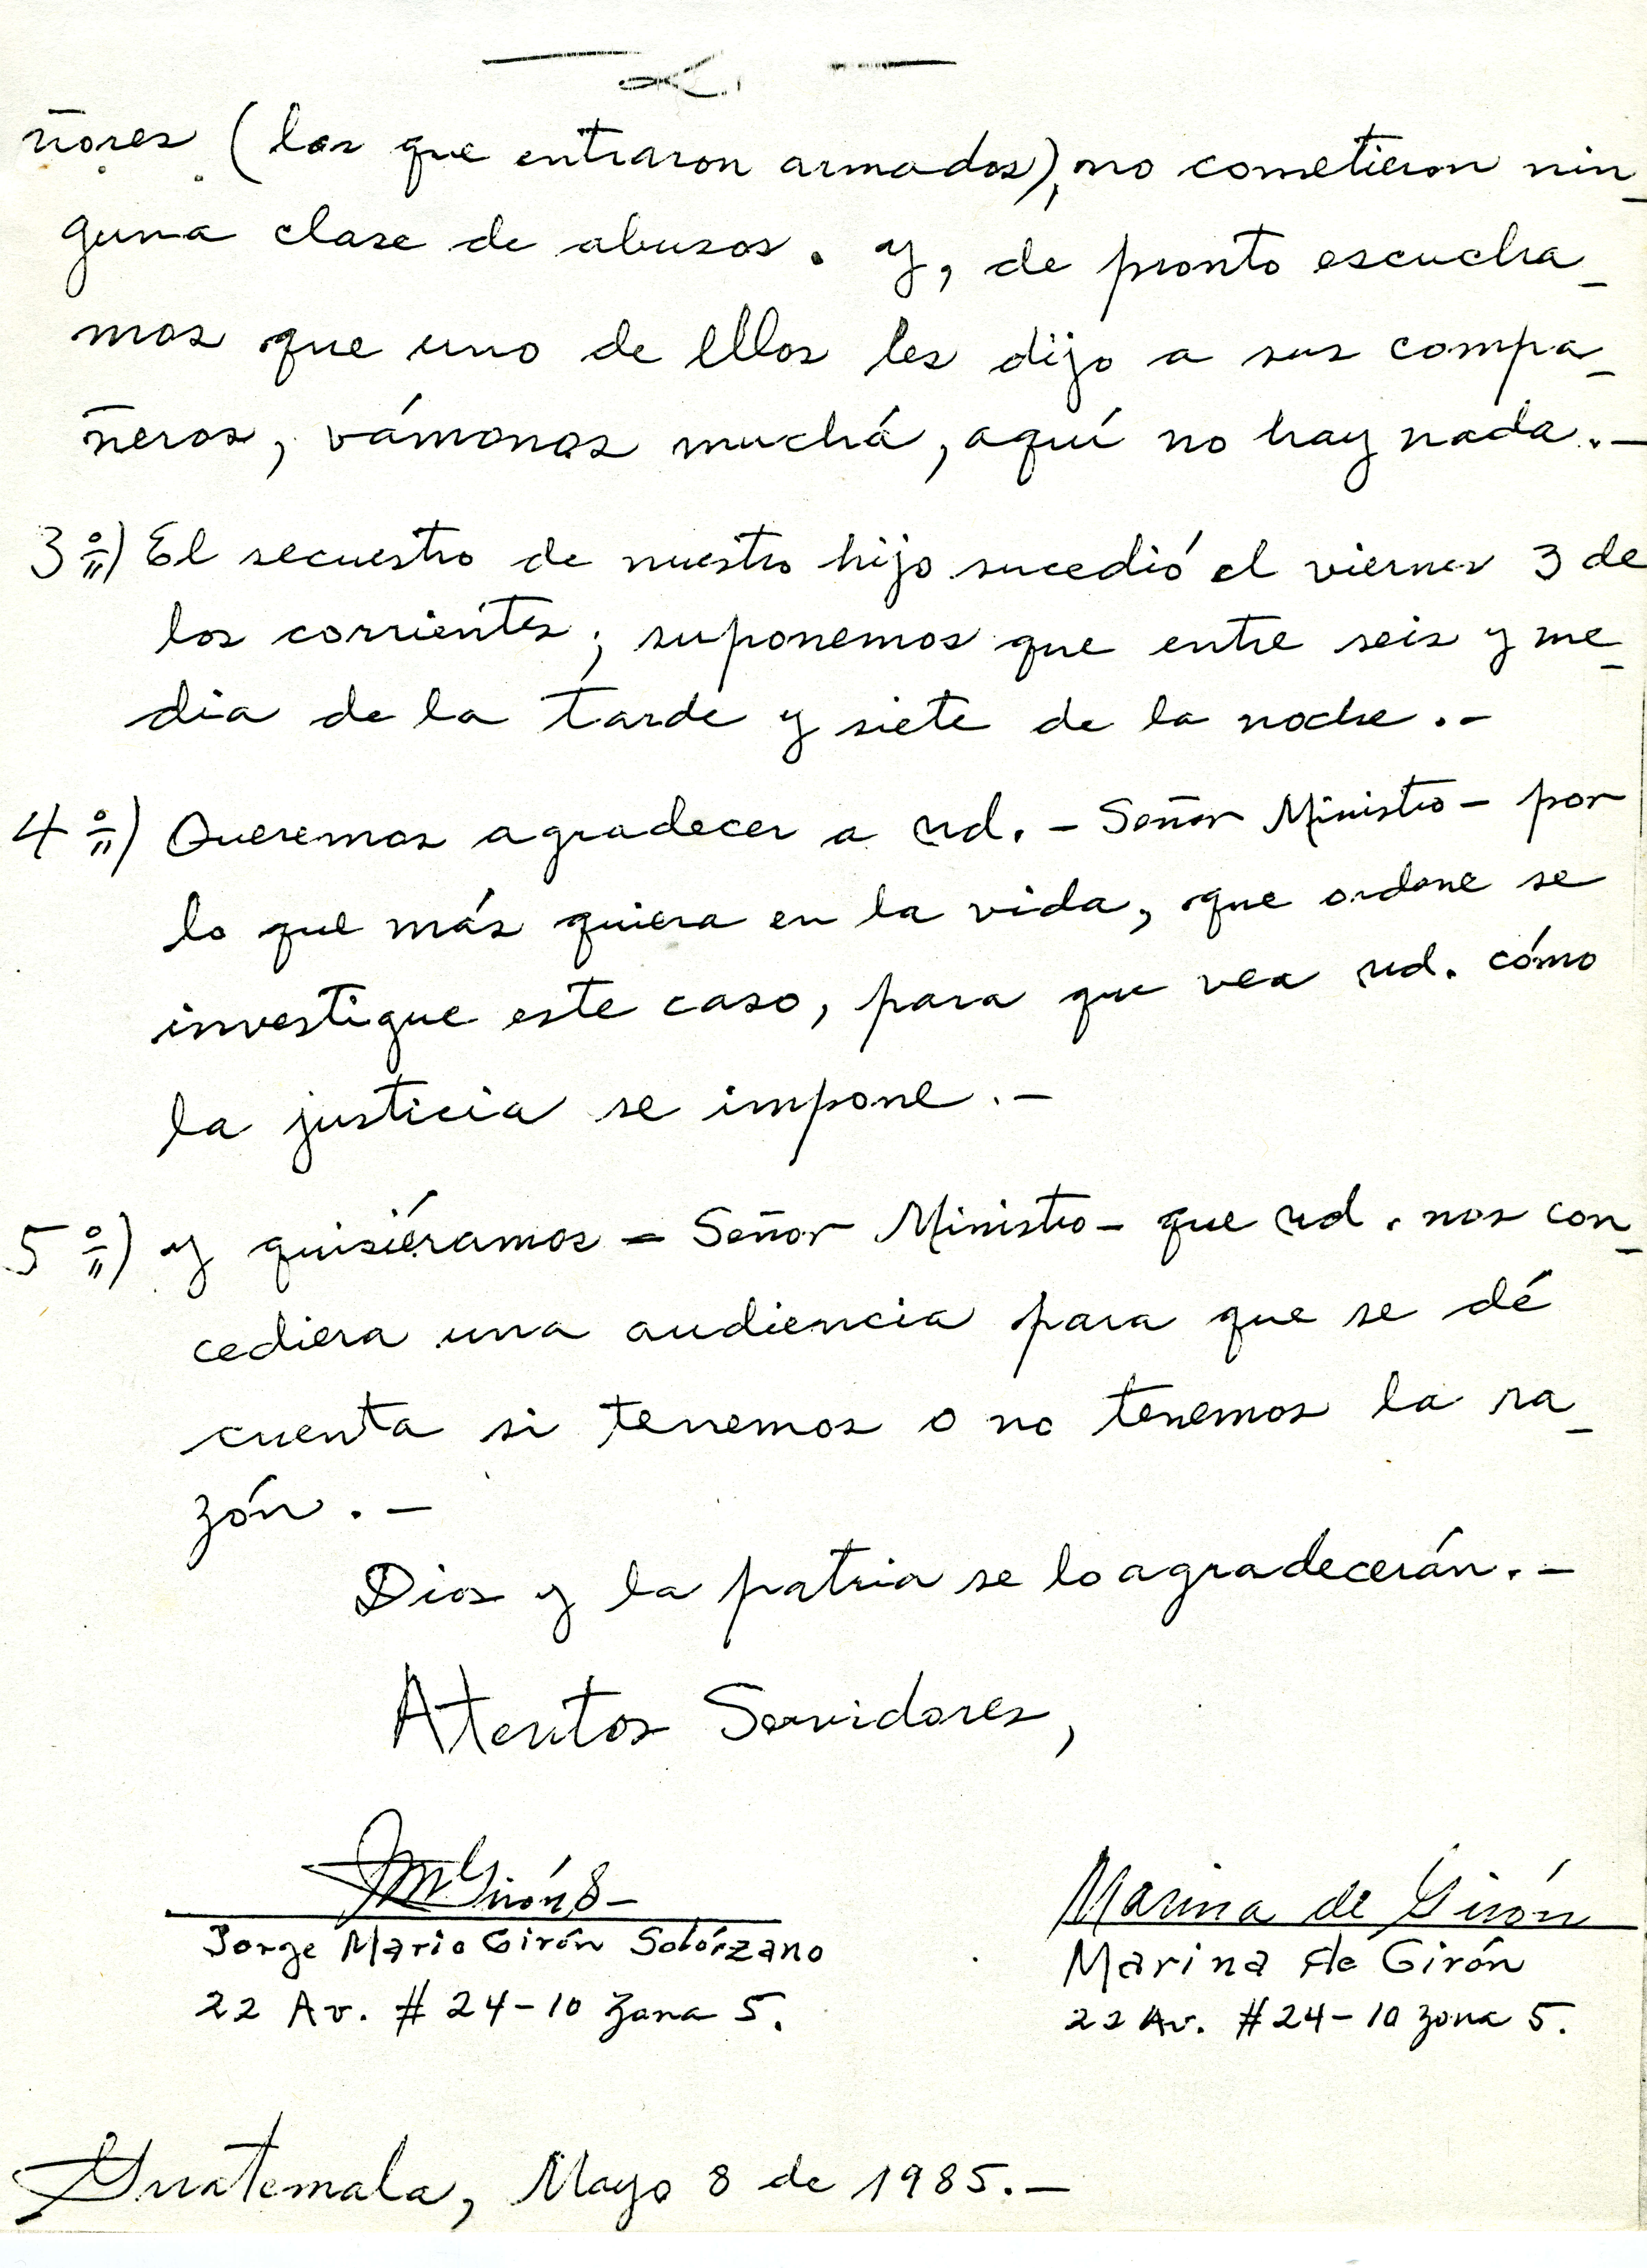 ñores (los que entraron armados), no cometieron nin_
guna clase de abusos. y, de pronto escucha_
mos que uno de ellos les dijo a sus compa_
ñeros, vámonos muchá, aquí no hay nada.-
3º) El secuestro de nuestro hijo sucedió el viernes 3 de
los corrientes; suponemos que entre seis y me_
dia de la tarde y siete de la noche.-
4º) Queremos agradecer a Ud. - Señor Ministro - por
lo que más quiera en la vida, que ordene se
investigue este caso, para que vea Ud. cómo
la justicia se impone.-
5º) y quisiéramos - Señor Ministro - que Ud. nos con_
cediera una audiencia para que se dé
cuenta si tenemos o no tenemos la ra_
zón.-
Dios y la patria se lo agradecerán.-
Atentos Servidores,
Marina de Girón
Jorge Mario Girón Solórzano
Marina de Girón
22 Av. # 24-10 Zona 5.
22 Av. # 24-10 Zona 5.
Guatemala, Mayo 8 de 1985.-